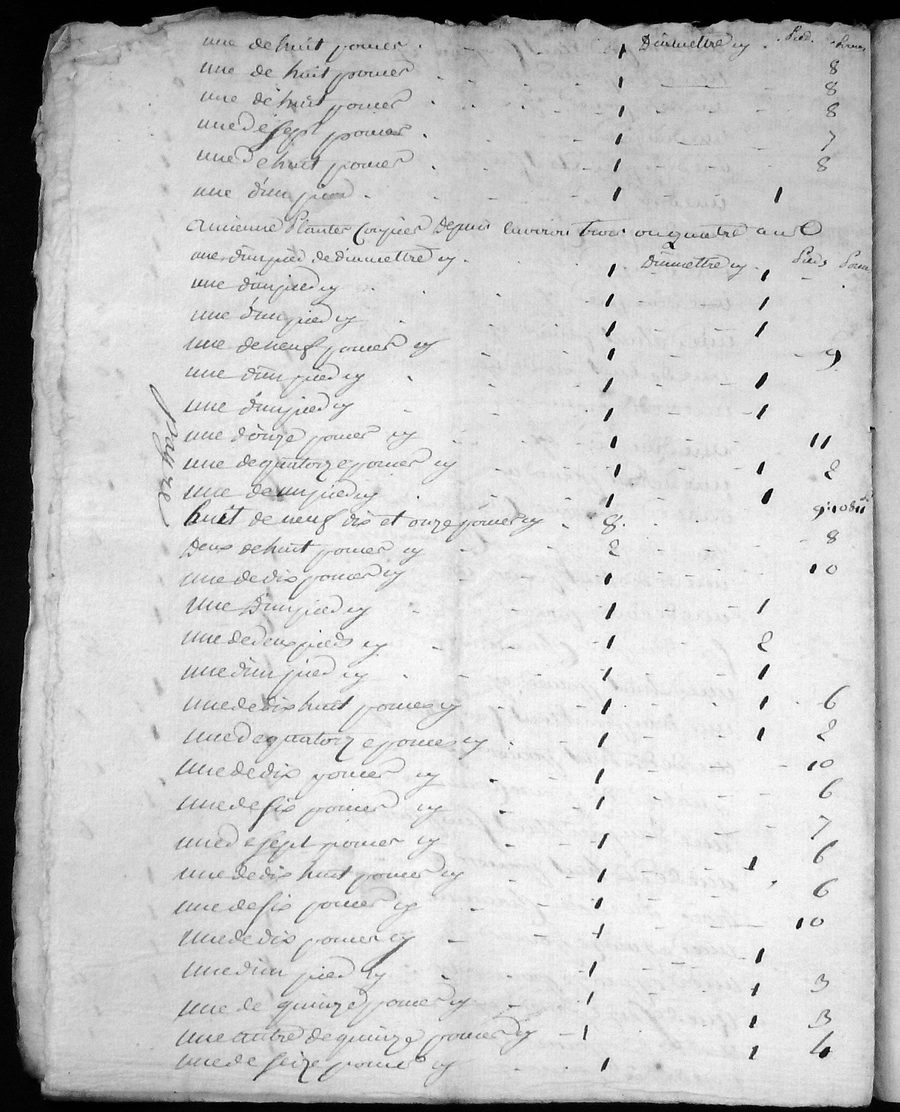 une de huit pouces . 1 Diamettre cy . Pied . Pouces
une de huit pouces 1 8
une de huit pouces 1 8
une de sept pouces 1 7
une de huit pouces 1 8
une d'un pied 1 1
ancienne Plantes Coupées Depuis environ trois ou quatre ans
une d'un pied de diamettre cy . 1 Diamettre cy . 1 Pieds Pouces
une d'un pied cy 1 1
une d'un pied cy 1 1
une de neuf pouces cy 1 9
une d'un pied cy 1 1
une d'un pied cy 1 1
une d'onze pouces cy 1 11
une de quatorze pouces cy 1 1 2
une de un pied cy 1 1
huit de neuf dix et onze pouces cy 8 9 10 & 11
Deux de huit pouces cy 2 8
une de dix pouces cy 1 10
une D'un pied cy 1 1
une de deux pieds cy 1 2
une d'un pied cy 1 1
une de dix huit pouces cy 1 1 6
une de quatorze pouces cy 1 1 2
une de dix pouces cy 1 10
une de six pouces cy 1 6
une de sept pouces cy 1 7
une de dix huit pouces cy 1 1 6
une de six pouces cy 1 6
une de dix pouces cy 1 10
une d'un pied cy 1 1
une de quinze pouces cy 1 1 3
une autre de quinze pouces cy 1 1 3
une de seize pouces cy 1 1 4